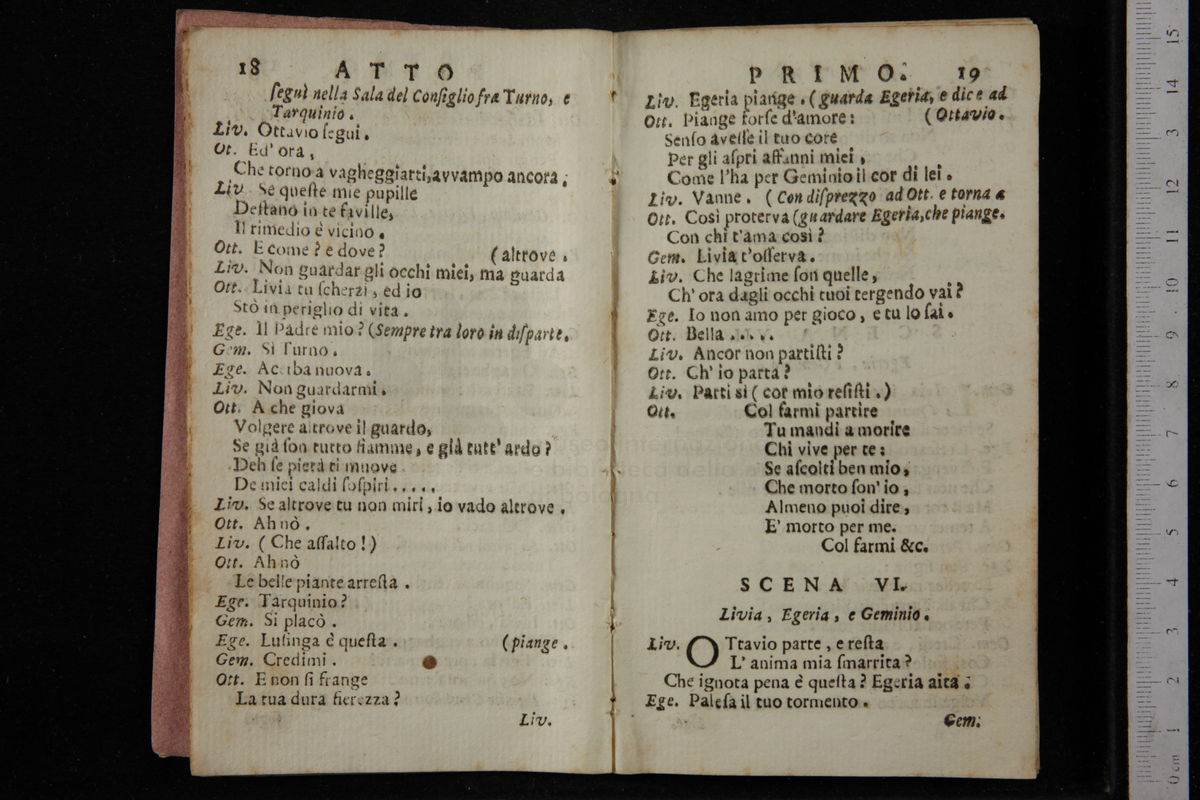 18 ATTO
ſeguì nella Sala del Conſiglio fra Turno, e
Tarquinio.
Liv. Ottavio ſegui.
Ot. Ed' ora,
Che torno a vagheggiarti, avvampo ancora.
Liv. Se queſte mie pupille
Deſtano in te faville,
Il rimedio è vicino.
Ott. E come? e dove? (altrove.
Liv. Non guardar gli occhi miei, ma guarda
Ott. Livia tu ſcherzi, ed io
Stò in periglio di vita.
Ege. Il Padre mio? (Sempre tra loro in diſparte.
Gem. Sì Turno.
Ege. Acerba nuova.
Liv. Non guardarmi.
Ott. A che giova
Volgere altrove il guardo,
Se già ſon tutto fiamme, e già tutt' ardo?
Deh ſe pietà ti muove
De miei caldi ſoſpiri.....
Liv. Se altrove tu non miri, io vado altrove.
Ott. Ah nò.
Liv. (Che aſſalto!)
Ott. Ah nò
Le belle piante arreſta.
Ege. Tarquinio?
Gem. Si placò.
Ege. Luſinga è queſta. (piange.
Gem. Credimi.
Ott. E non ſi frange
La tua dura fierezza?
Liv.
PRIMO. 19
Liv. Egeria piange. (guarda Egeria, e dice ad
Ott. Piange forſe d'amore: (Ottavio.
Senſo aveſſe il tuo core
Per gli aſpri affanni miei,
Come l'ha per Geminio il cor di lei.
Liv. Vanne. (Con diſprezzo ad Ott. e torna a
Ott. Così proterva (guardare Egeria, che piange.
Con chi t'ama così?
Gem. Livia t'oſſerva.
Liv. Che lagrime ſon quelle,
Ch' ora dagli occhi tuoi tergendo vai?
Ege. Io non amo per gioco, e tu lo ſai.
Ott. Bella.....
Liv. Ancor non partiſti?
Ott. Ch' io parta?
Liv. Parti sì (cor mio reſiſti.)
Ott. Col farmi partire
Tu mandi a morire
Chi vive per te:
Se aſcolti ben mio,
Che morto ſon' io,
Almeno puoi dire,
E' morto per me.
Col farmi &c.
SCENA VI.
Livia, Egeria, e Geminio.
Liv. OTtavio parte, e reſta
L' anima mia ſmarrita?
Che ignota pena è queſta? Egeria aita.
Ege. Paleſa il tuo tormento.
Gem.